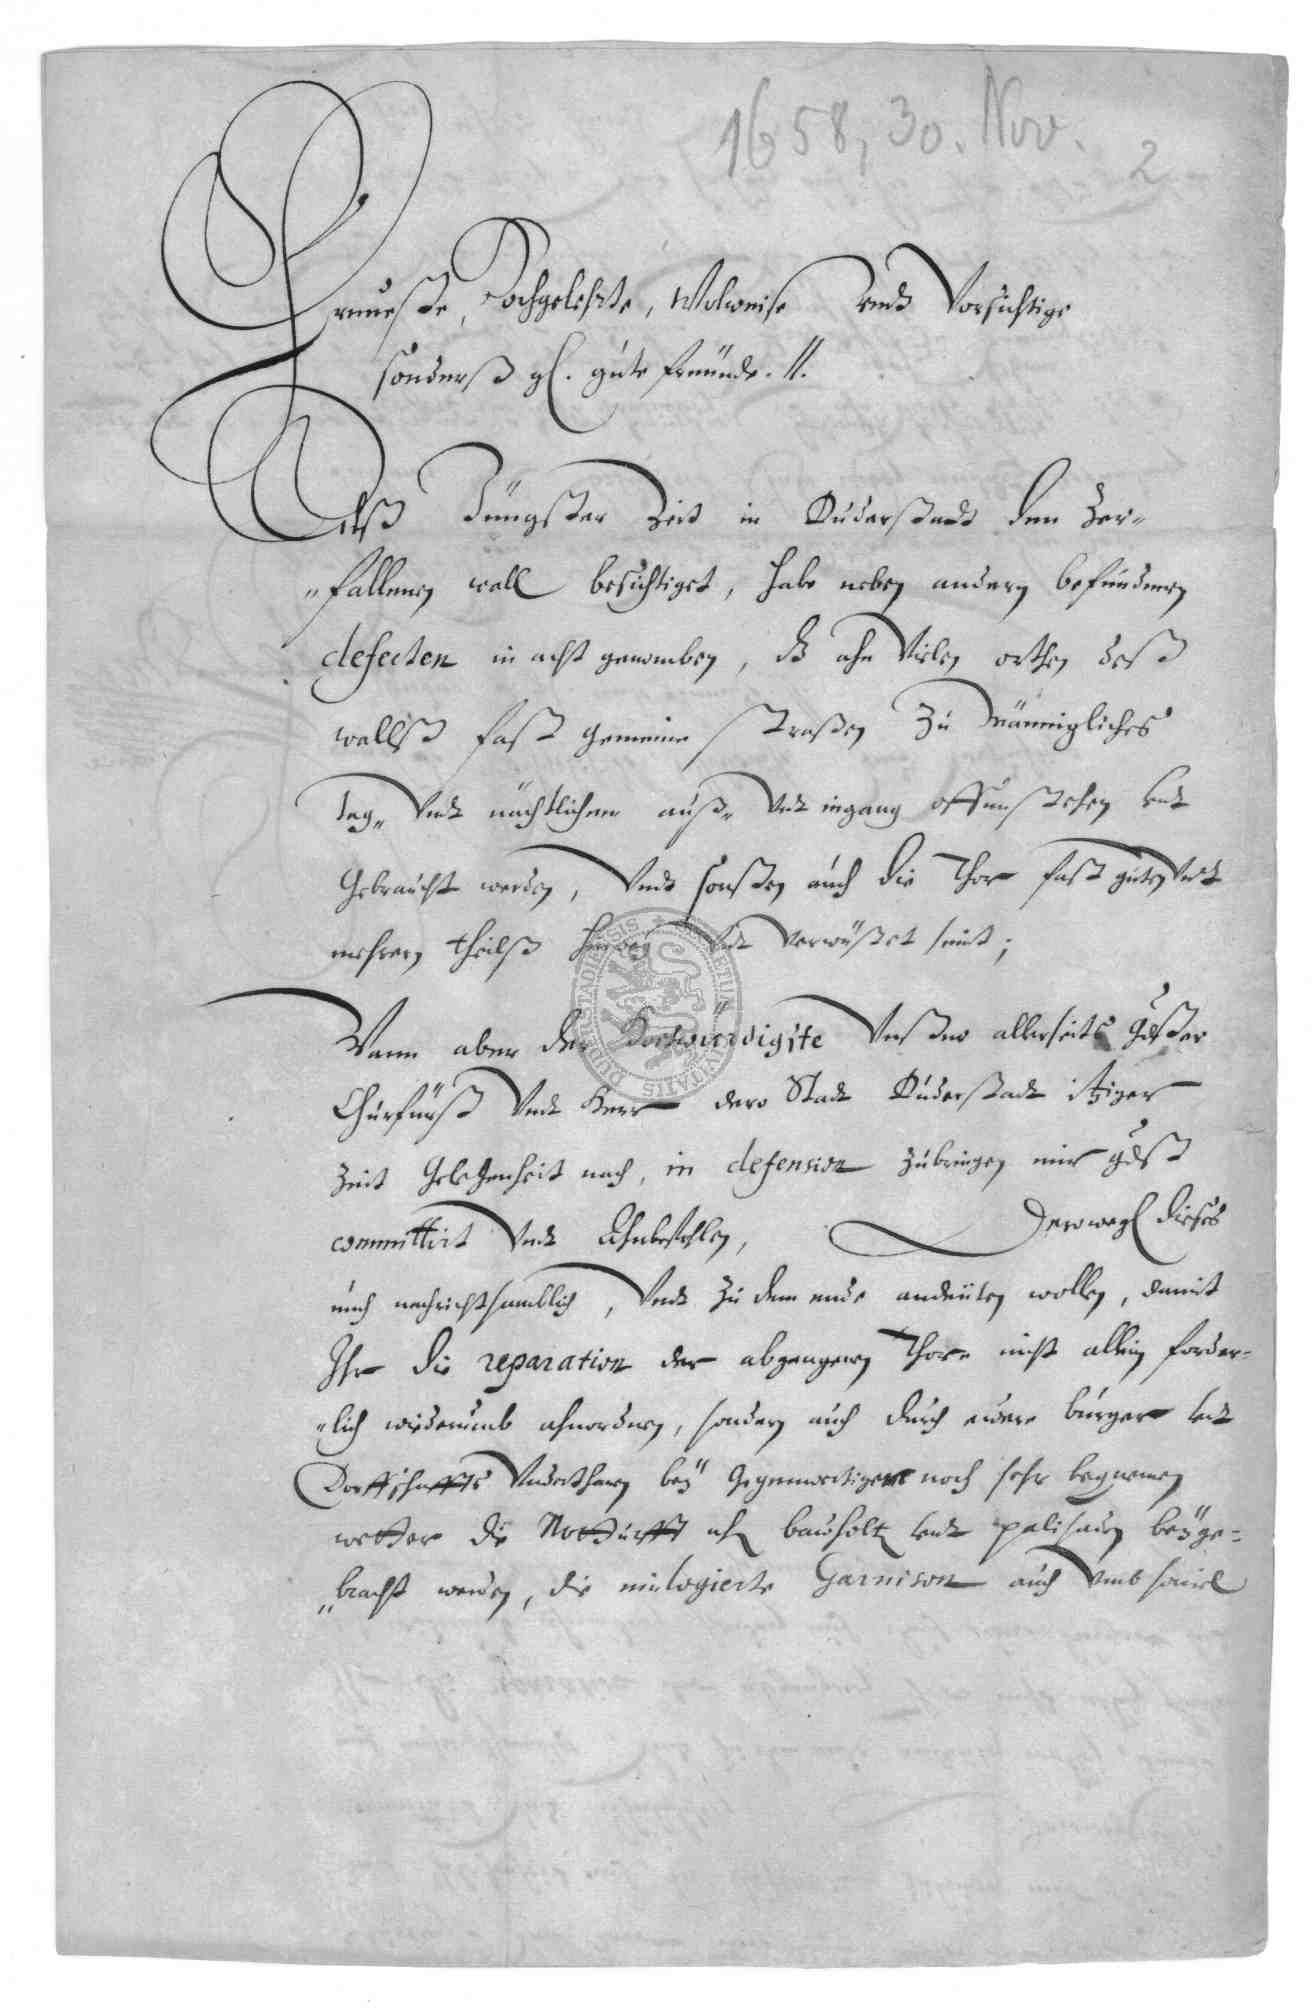 1658, 30. Nov.
2
Ernueste, Hochgelehrte, Wolweise vndt Vorsichtige
sonderß gl. gute freünde. //.
Alß Jüngster Zeit in Duderstadt den Zer-
"fallenen wall besichtiget, habe neben andern befundenen
defecten in acht genomben, dz ahn Vielen orthen deß
wallß fast gemeine straßen Zu Männigliches
tag- Vndt nächtlichem auß- Vndt ingang offen stehen vndt
Gebraucht werden, Vndt sonsten auch die Thor fast guten
mehren theilß Vndt verwüstet seint;
Wann aber der Hochwürdigste Vnßer allerseits Gdster
Churfürst Vndt Herr dero Stadt Duderstadt itziger
Zeit Gelegenheit nach, in defension zubringen mir gdst
committirt Vndt Ahnbefohlen, Derowegl dieses
euch nachrichtsamblich, Vndt zu dem ende andeüten wollen, damit
Ihr die reparation der abgangenen Thore nicht allein forder-
"lich wiederumb ahnordnen, sondern auch durch ewere bürger vndt
Dorffschaffts Vnderthanen bey Gegenwertigem noch sehr beqwemen
wetter die Notturfft ahn bawholtz vndt palisaden beyge-
"bracht werden, die einlogierte Garnison auch Vmb souiel
SECRETUM CIVITATIS DUDERSTADIENSIS